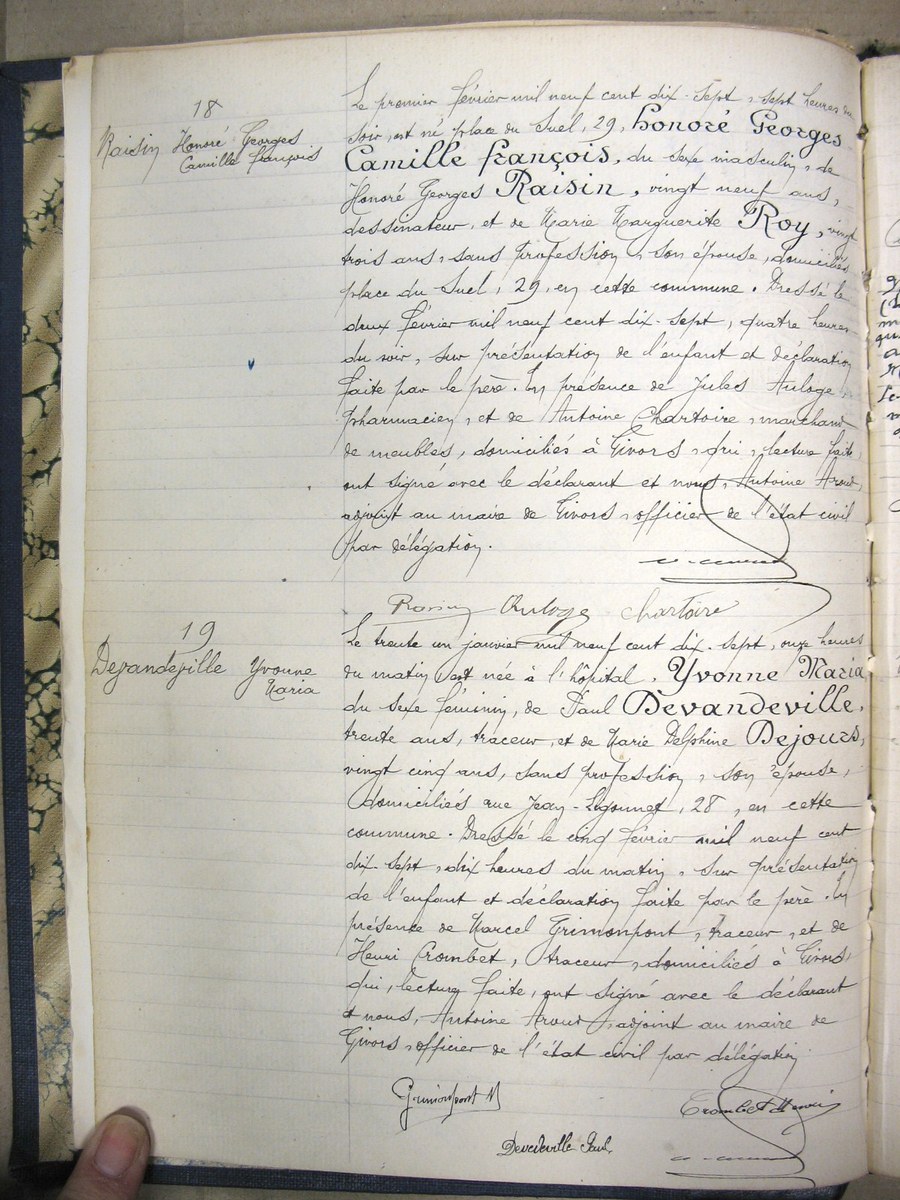 18
Raisin Honoré Georges
Camille François
Le premier février mil neuf cent dix-sept, sept heures du
soir, est né place du Suel, 29, Honoré Georges
Camille François, du sexe masculin, de
Honoré Georges Raisin, vingt neuf ans,
dessinateur, et de Marie Marguerite Roy, vingt
trois ans, sans profession, son épouse, domiciliés
place du Suel, 29, en cette commune. Dressé le
deux février mil neuf cent dix-sept, quatre heures
du soir, sur présentation de l'enfant et déclaration
faite par le père. En présence de Jules Auloge,
pharmacien, et de Antoine Chartoire, marchand
de meubles, domiciliés à Givors, qui, lecture faite,
ont signé avec le déclarant et nous, Antoine Aroud,
adjoint au maire de Givors, officier de l'état civil
par délégation.
Raisin Auloge Chartoire
19
Devandeville Yvonne
Maria
Le trente un janvier mil neuf cent dix-sept, onze heures
du matin est née à l'hôpital, Yvonne Maria
du sexe féminin, de Paul Devandeville,
trente ans, traceur, et de Marie Delphine Dejours,
vingt cinq ans, sans profession, son épouse,
domiciliés rue Jean-Ligonnet, 28, en cette
commune. Dressé le cinq février mil neuf cent
dix-sept, dix heures du matin, sur présentation
de l'enfant et déclaration faite par le père. En
présence de Marcel Grimonpont, traceur, et de
Henri Crombet, traceur, domiciliés à Givors,
qui, lecture faite, ont signé avec le déclarant
et nous, Antoine Aroud, adjoint au maire de
Givors, officier de l'état civil par délégation
Grimonpont M
Crombet Henri
Devandeville Paul